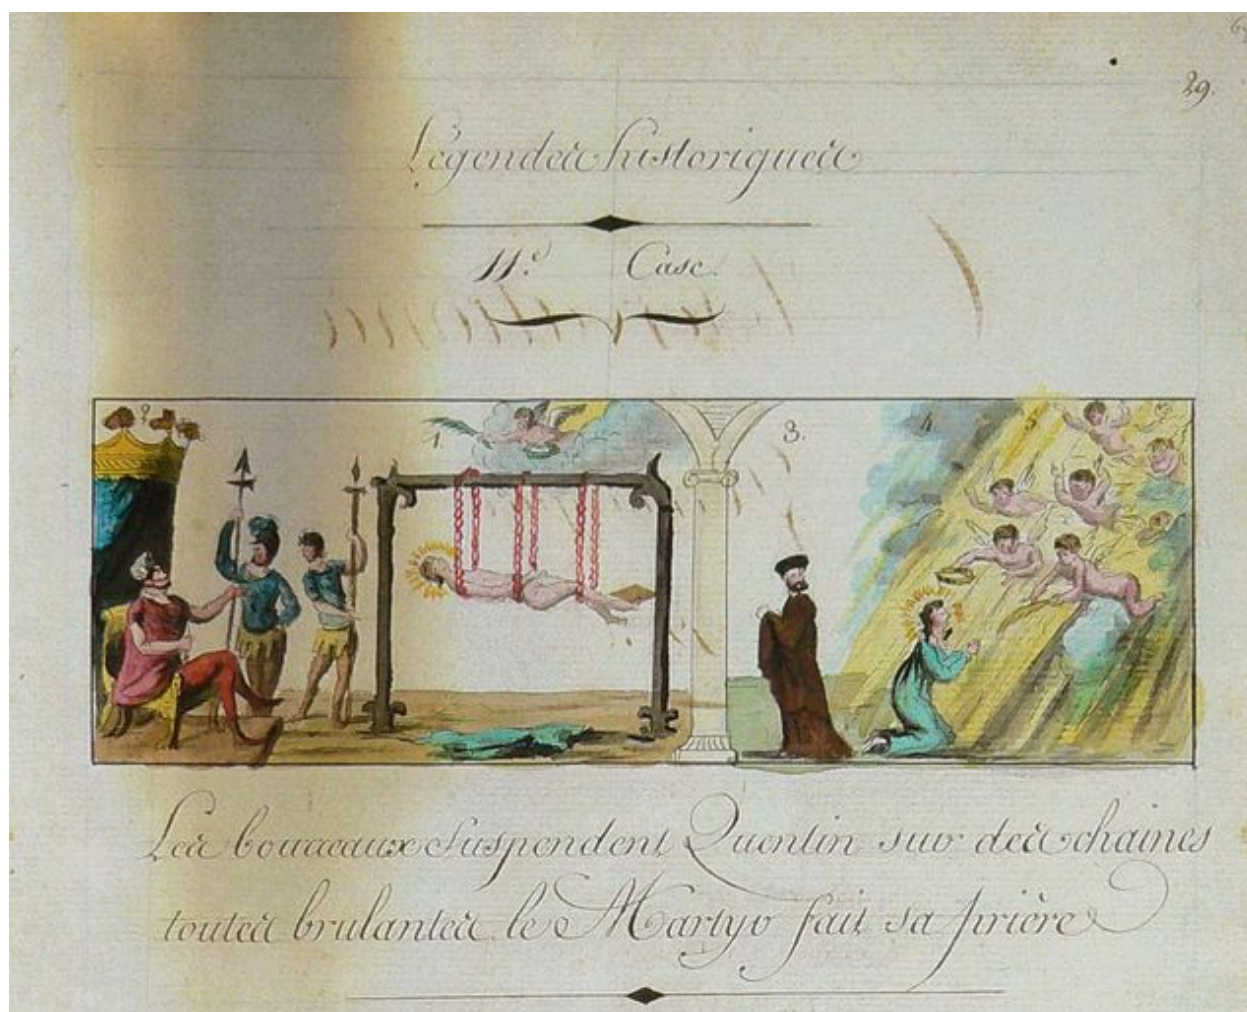 29.
Légendes historiques
11.e Case.
2 1. 3. 4 5
Les bourreaux suspendent Quentin sur des chaines
toutes brulantes le Martyr fait sa prière